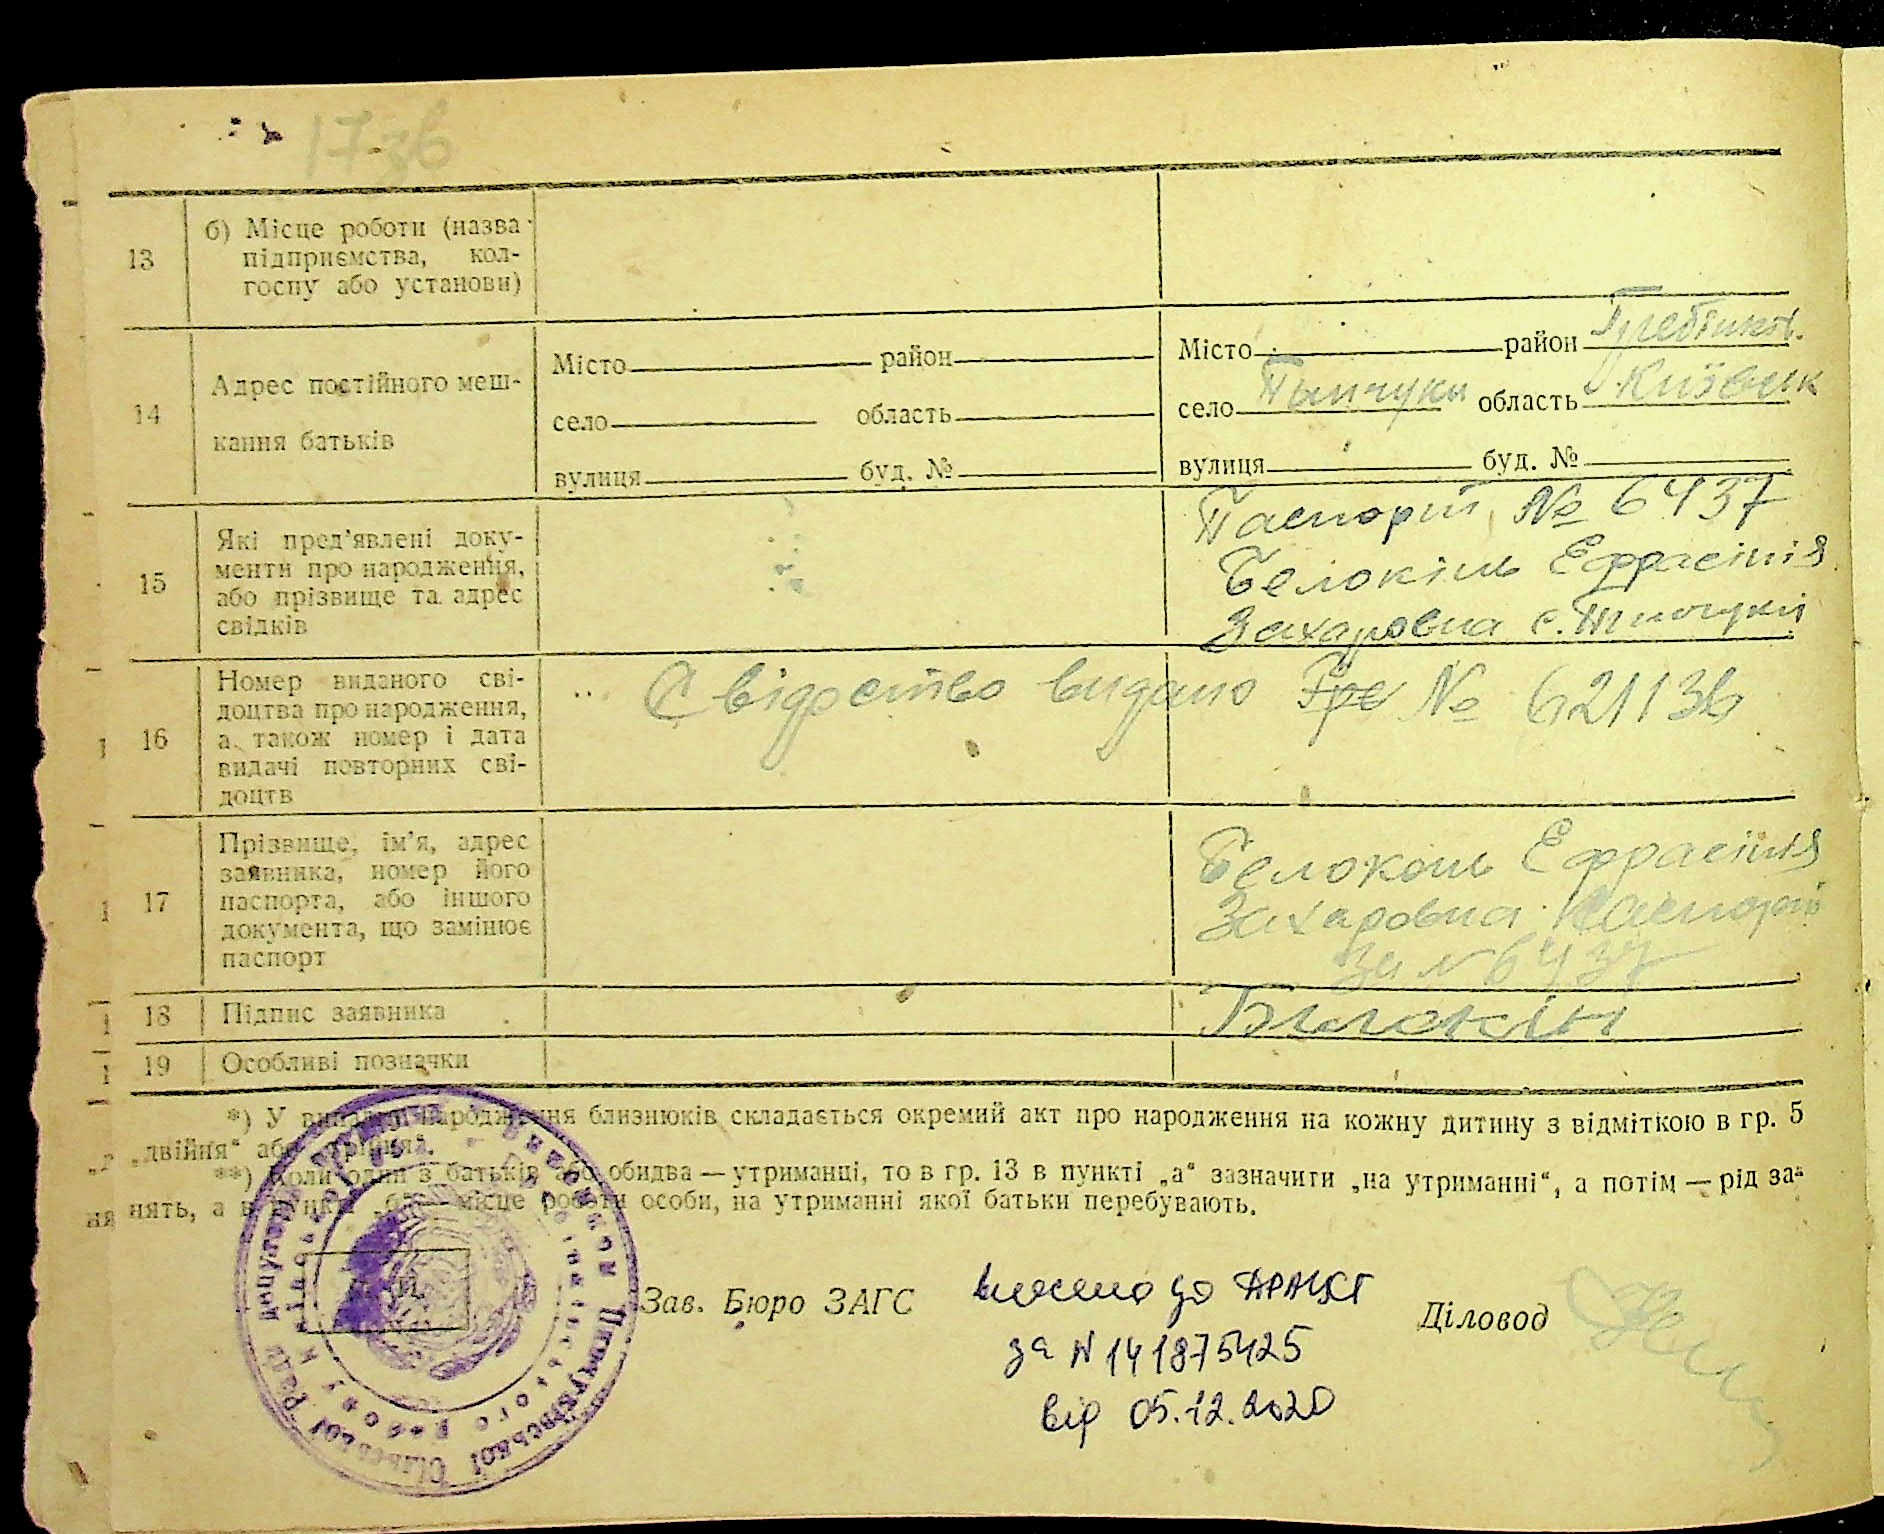 17 зв
13 б) Місце роботи (назва
підприємства, кол-
госпу або установи)
14 Адрес постійного меш-
кання батьків
Місто район
село область
вулиця буд. №
Місто район Гребінків.
село Пинчуки область Київськ
вулиця буд. №
15 Які пред'явлені доку-
менти про народження,
або прізвище та адрес
свідків
Паспорт № 6437
Белокінь Ефрасинія
Захаровна с. Пинчуки
16 Номер виданого сві-
доцтва про народження,
а також номер і дата
видачі повторних сві-
доцтв
Свідоство видано № 621136
17 Прізвище, ім'я, адрес
заявника, номер його
паспорта, або іншого
документа, що замінює
паспорт
Белоконь Ефрасинія
Захаровна Паспорт
за № 6437
18 Підпис заявника Билокінь
19 Особливі позначки
*) У випадку народження близнюків складається окремий акт про народження на кожну дитину з відміткою в гр. 5
„двійня“ або „трійня“.
**) Коли один з батьків або обидва — утриманці, то в гр. 13 в пункті „а“ зазначити „на утриманні“, а потім — рід за-
нять, а в пункті „б“ — місце роботи особи, на утриманні якої батьки перебувають.
Зав. Бюро ЗАГС
Діловод
внесено до ДРАЦСГ
за N 141875425
від 05.12.2020